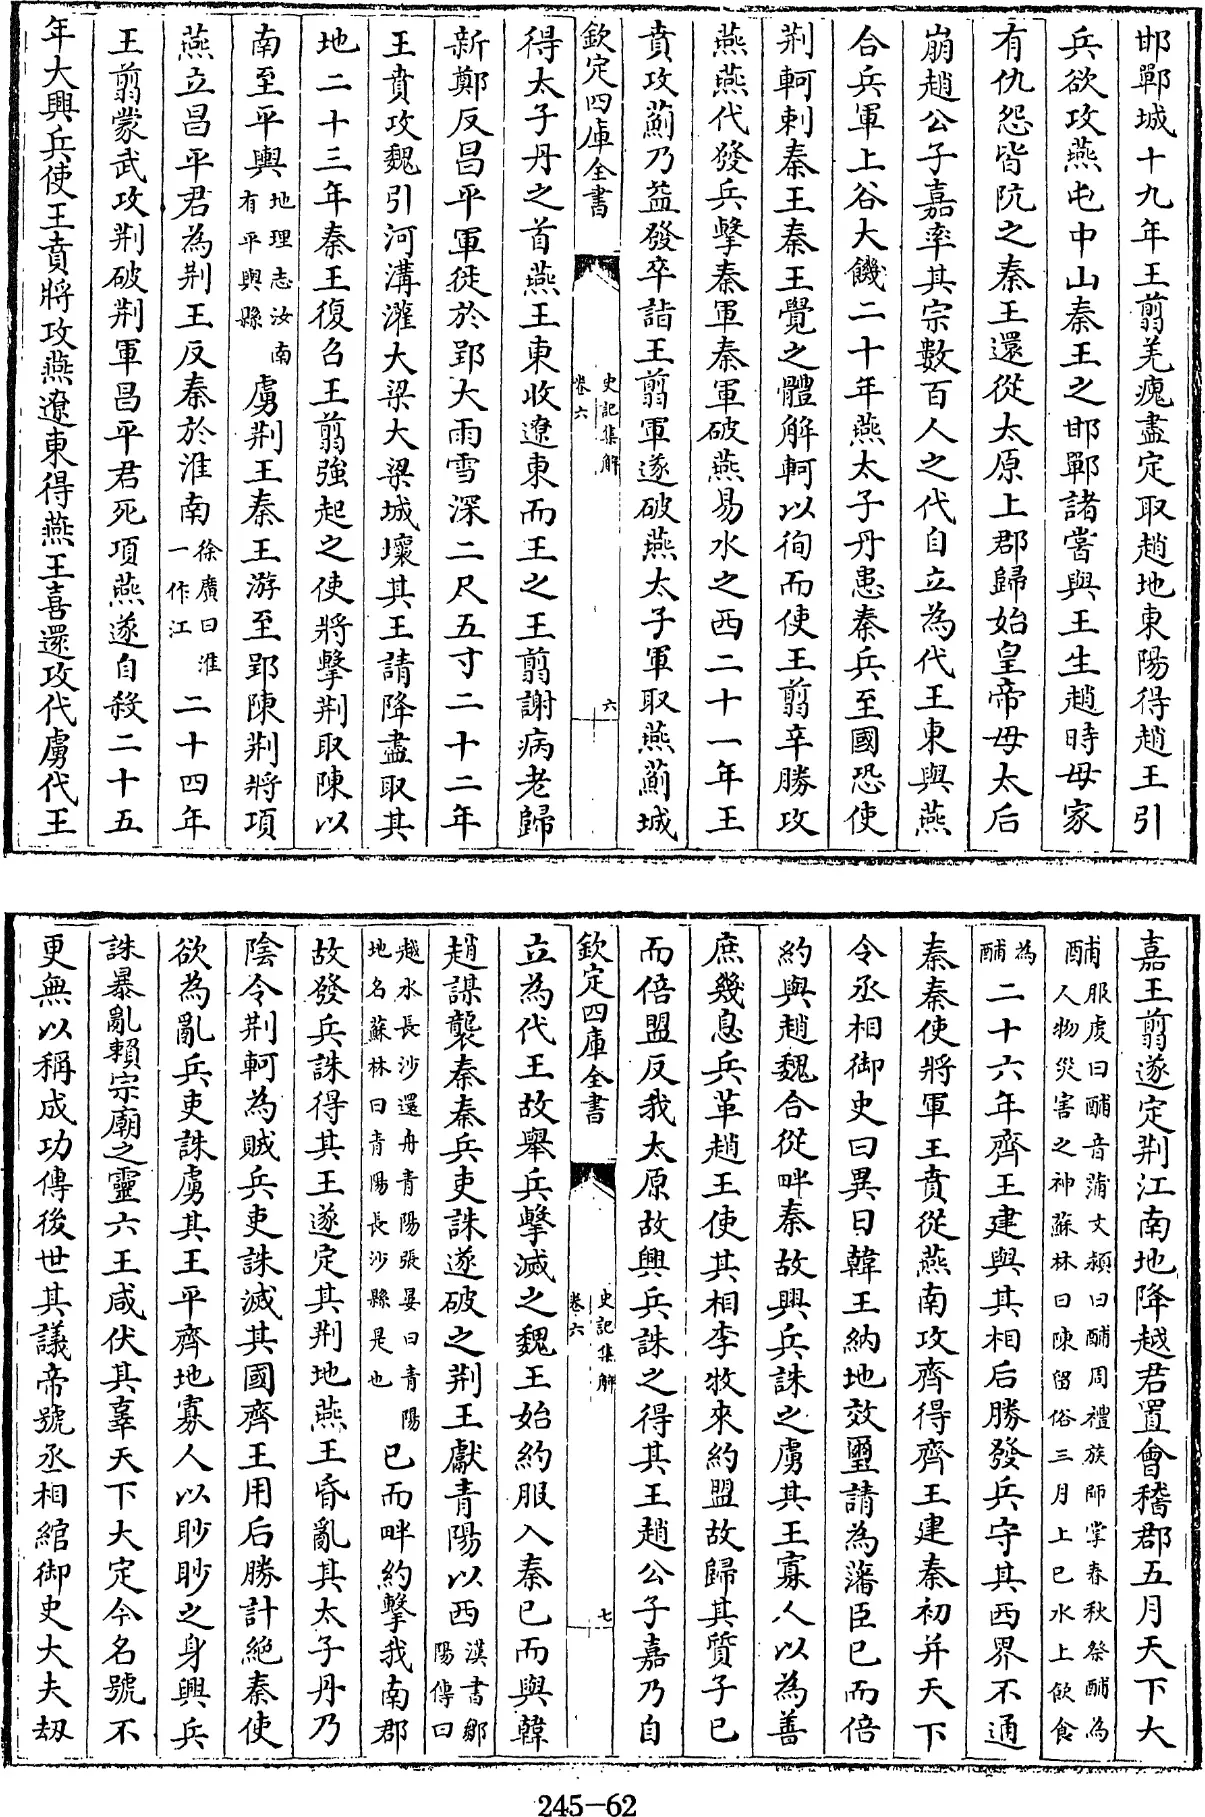 邯鄲城十九年王翦羌瘣盡定取趙地東陽得趙王引
兵欲攻燕屯中山秦王之邯鄲諸嘗與王生趙時母家
有仇怨皆阬之秦王還從太原上郡歸始皇帝母太后
崩趙公子嘉率其宗數百人之代自立為代王東與燕
合兵軍上谷大饑二十年燕太子丹患秦兵至國恐使
荆軻刺秦王秦王覺之體解軻以徇而使王翦辛勝攻
燕燕代發兵擊秦軍秦軍破燕易水之西二十一年王
賁攻薊乃益發卒詣王翦軍遂破燕太子軍取燕薊城
欽定四庫全書
史記集解
卷六
六
得太子丹之首燕王東收遼東而王之王翦謝病老歸
新鄭反昌平軍徙於郢大雨雪深二尺五寸二十二年
王賁攻魏引河溝灌大梁大梁城壞其王請降盡取其
地二十三年秦王復召王翦強起之使將擊荆取陳以
南至平輿地理志汝南有平輿縣虜荆王秦王游至郢陳荆將項
燕立昌平君為荆王反秦於淮南徐廣曰淮一作江二十四年
王翦蒙武攻荆破荆軍昌平君死項燕遂自殺二十五
年大興兵使王賁將攻燕遼東得燕王喜還攻代虜代王
嘉王翦遂定荆江南地降越君置會稽郡五月天下大
酺服虔曰酺音蒲文穎曰酺周禮族師掌春秋祭酺為人物災害之神蘇林曰陳留俗三月上巳水上飲食
為酺二十六年齊王建與其相后勝發兵守其西界不通
秦秦使將軍王賁從燕南攻齊得齊王建秦初并天下
令丞相御史曰異日韓王納地效璽請為藩臣已而倍
約與趙魏合從畔秦故興兵誅之虜其王寡人以為善
庶幾息兵革趙王使其相李牧來約盟故歸其質子已
而倍盟反我太原故興兵誅之得其王趙公子嘉乃自
欽定四庫全書
史記集解
卷六
七
立為代王故舉兵擊滅之魏王始約服入秦已而與韓
趙謀襲秦秦兵吏誅遂破之荆王獻青陽以西漢書鄒陽傳曰
越水長沙還舟青陽張晏曰青陽地名蘇林曰青陽長沙縣是也已而畔約擊我南郡
故發兵誅得其王遂定其荆地燕王昏亂其太子丹乃
陰令荆軻為賊兵吏誅滅其國齊王用后勝計絶秦使
欲為亂兵吏誅虜其王平齊地寡人以眇眇之身興兵
誅暴亂賴宗廟之靈六王咸伏其辜天下大定今名號不
更無以稱成功傳後世其議帝號丞相綰御史大夫劫
245-62